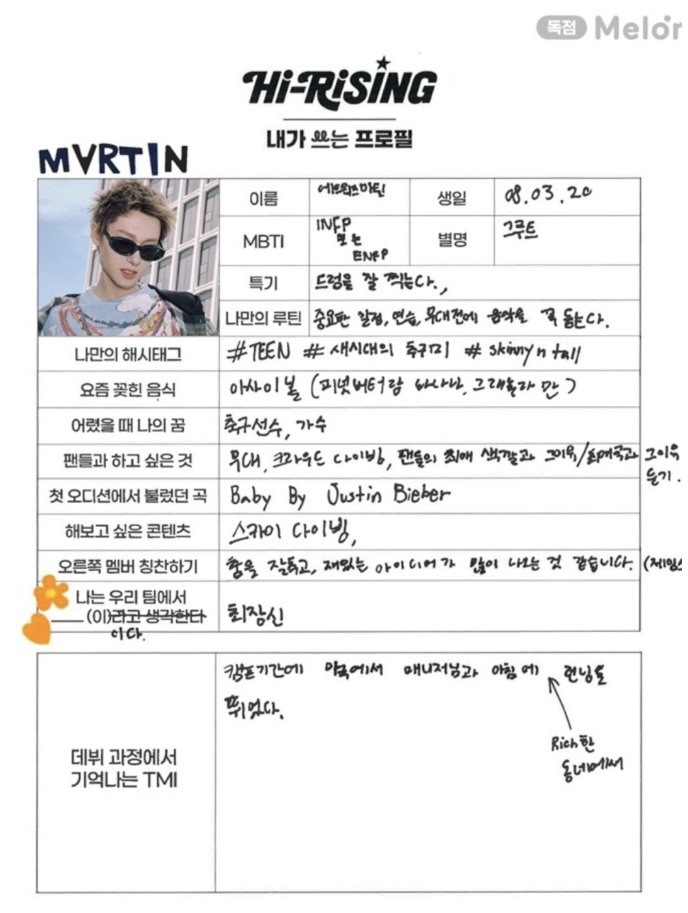 독점 Melon
Hi-RiSiNG
내가 쓰는 프로필
MVRTIN
이름 에드워즈마틴 생일 08.03.20
MBTI INFP 또는 ENFP 별명 그루트
특기 드럼을 잘 찍는다.,
나만의 루틴 중요한 일정, 연습, 무대전에 음악을 꼭 듣는다.
나만의 해시태그 #TEEN # 새시대의 축구미 # skinny n tall
요즘 꽂힌 음식 아사이볼 (피넛버터랑 바나나, 그래놀라 만)
어렸을 때 나의 꿈 축구선수, 가수
팬들과 하고 싶은 것 무대, 크라우드 다이빙, 팬들의 최애 색깔과 그이유/최애곡과 그이유 듣기.
첫 오디션에서 불렀던 곡 Baby By Justin Bieber
해보고 싶은 콘텐츠 스카이 다이빙,
오른쪽 멤버 칭찬하기 춤을 잘추고, 재밌는 아이디어가 많이 나오는 것 같습니다. (제임스
나는 우리 팀에서
(이)라고 생각한다 이다. 최장신
캠프기간에 미국에서 매니저님과 아침에 런닝을
뛰었다.
Rich한
동네에서
데뷔 과정에서
기억나는 TMI